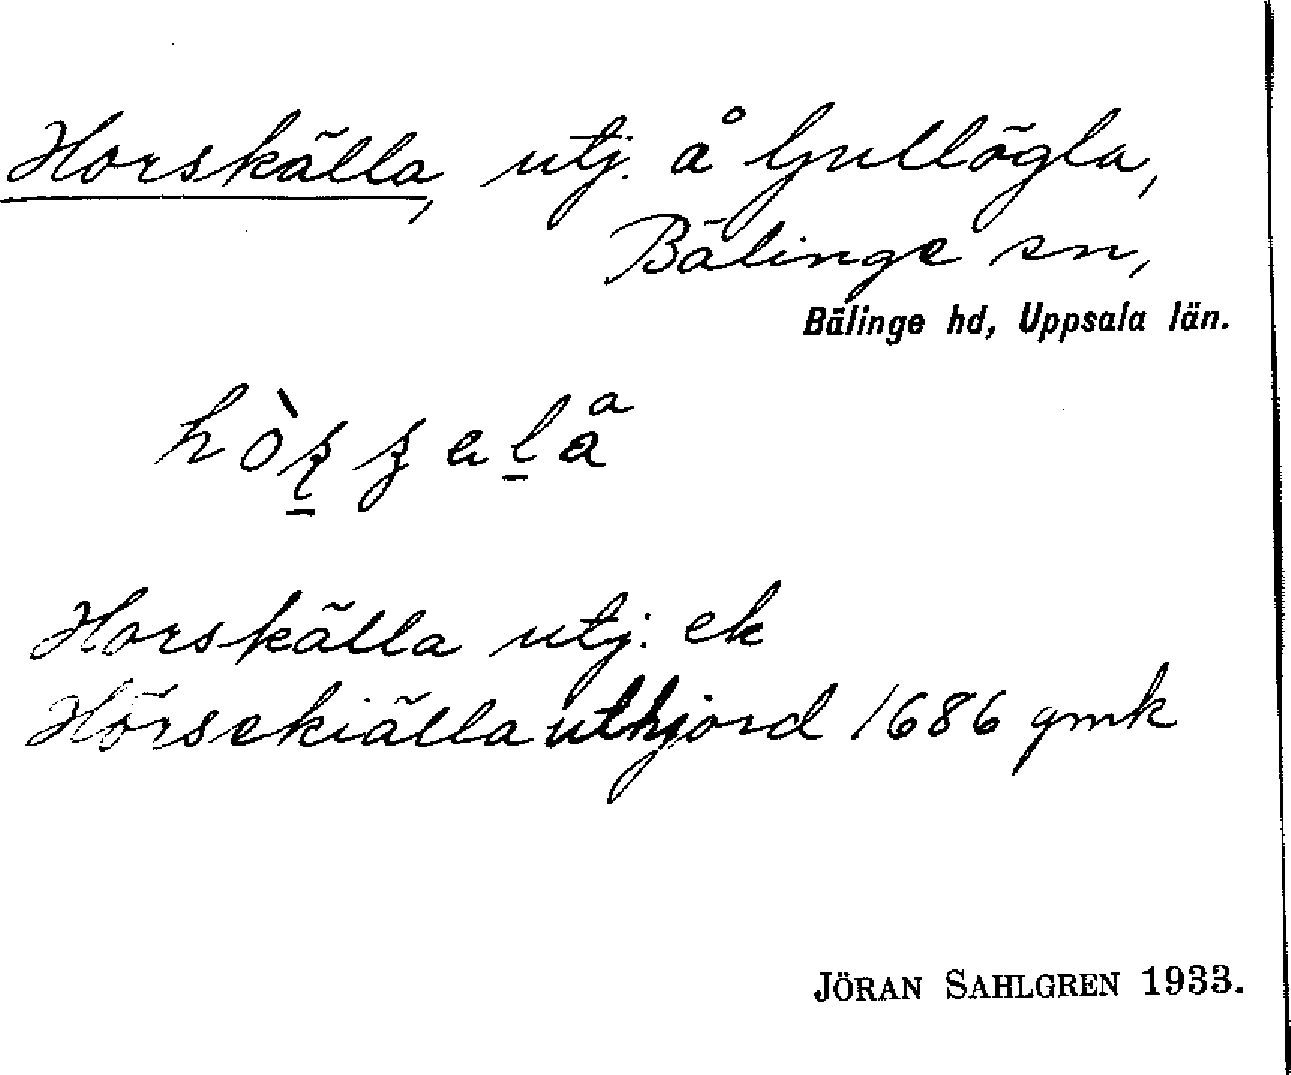 Horskälla, utj. å Gullögla,
Bälinge sn,
Bälinge hd, Uppsala län.
Horskälla utj. ek
Hörsekiälla uthjord 1686 gmk
JÖRAN SAHLGREN 1933.